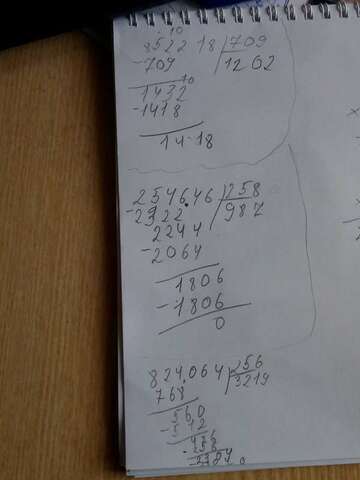 10
852218 709
-709 1202
1432
10
-1418
1418
254646 258
-2322 987
2244
-2064
1806
-1806
0
824.064 256
768 3219
560